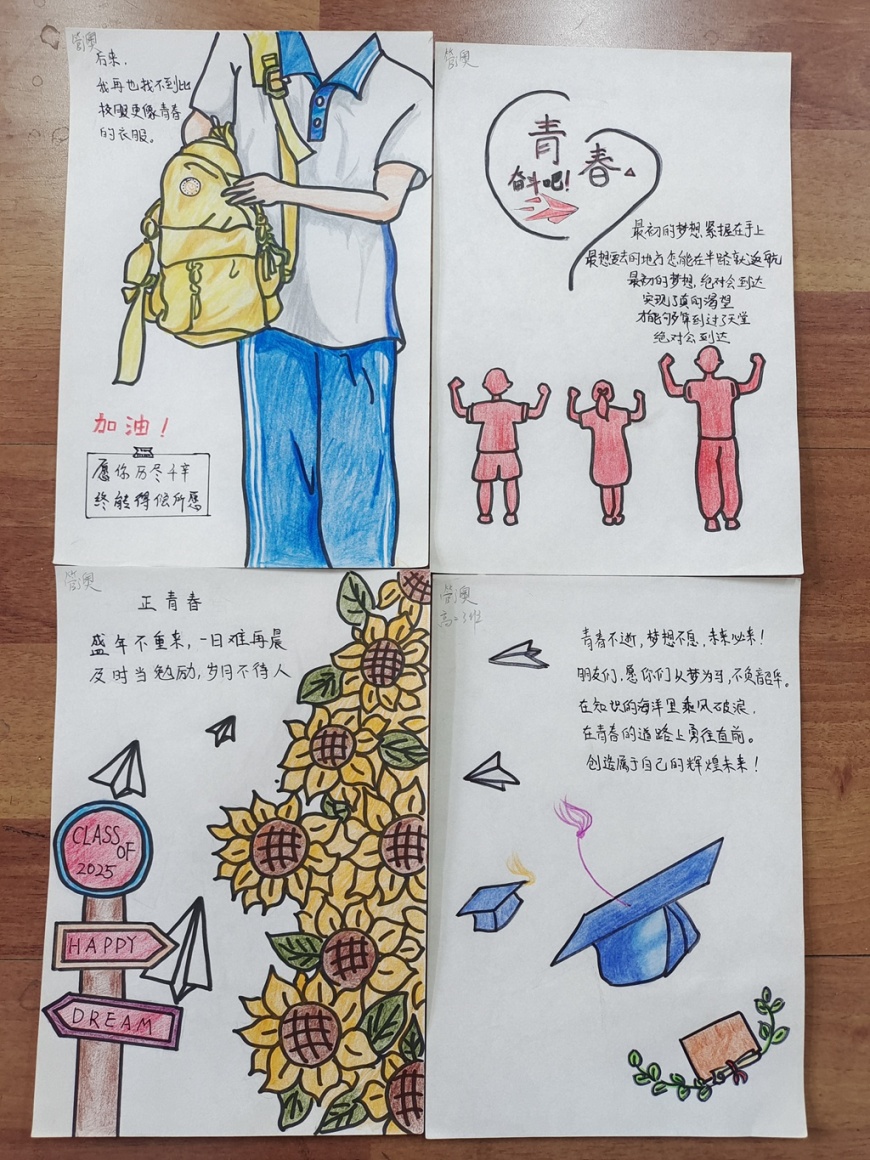 管奥
后来，
我再也找不到比
校服更像青春
的衣服。
加油！
愿你历尽千辛
终能得偿所愿
管奥
青春
奋斗吧！
最初的梦想紧握在手上
最想要去的地方怎能在半路就返航
最初的梦想，绝对会到达
实现了真的渴望
才能够算到过了天堂
绝对会到达
管奥
正青春
盛年不重来，一日难再晨
及时当勉励，岁月不待人
CLASS
OF
2025
HAPPY
DREAM
管奥
青春不逝，梦想不息，未来必来！
朋友们，愿你们以梦为马，不负韶华。
在知识的海洋里乘风破浪，
在青春的道路上勇往直前。
创造属于自己的辉煌未来！